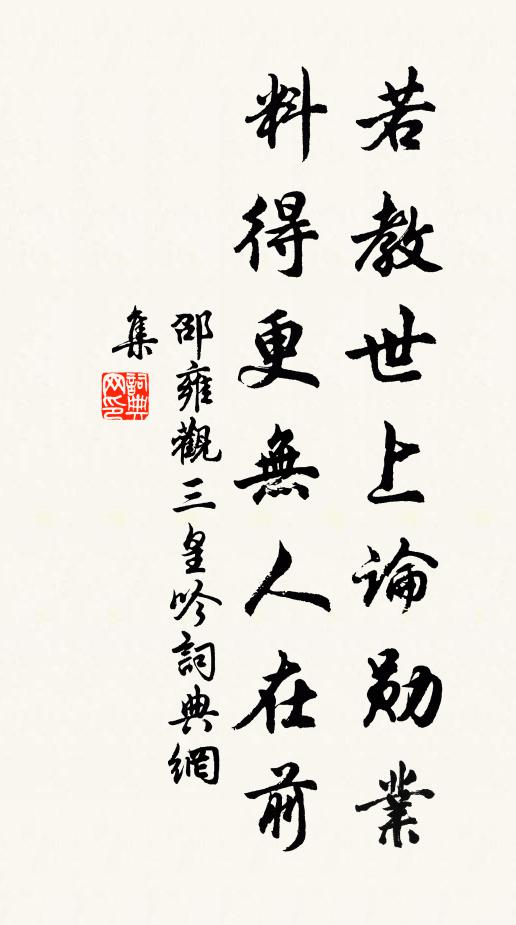 若教世上論勛業
料得更無人在前
邵雍觀三皇吟詞典網
集
詞典
网印